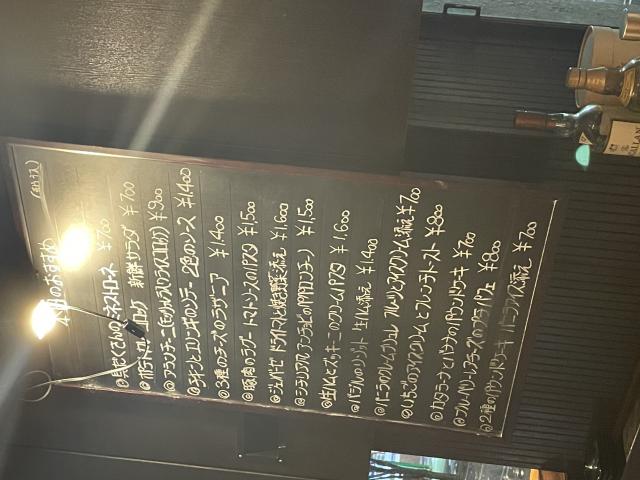 今日のおすすめ
(税込)
◎具だくさんのミネストローネ ¥700
◎ポテトコロッケ 新鮮サラダ ¥700
◎アランチーニ(モッツァレラのライスコロッケ) ¥900
◎チキンとエリンギのソテー 2色のソース ¥1,400
◎3種のチーズのラザニア ¥1,400
◎豚肉のラグー トマトソースのパスタ ¥1,500
ドライトマトと焼き野菜添え ¥1,600
¥1,500
◎生ハムとズッキーニのクリームパスタ ¥1,600
リゾット 生ハム添え ¥1,400
◎バニラのクレームブリュレ フルーツとアイスクリーム添え ¥700
◎いちごのアイスクリームとフレンチトースト ¥800
◎カタラーナとバナナのパウンドケーキ ¥700
◎ブルーベリーレアチーズのプチパフェ ¥800
◎2種のパウンドケーキ バニラアイス添え ¥700